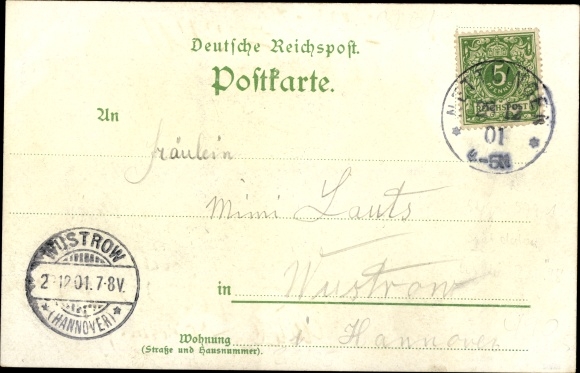 Deutsche Reichspost.
Postkarte.
5
12
01
An
Fräulein
Mimi Lauts
WUSTROW
2 12 01. 7-8V.
* (HANNOVER) *
in Wustrow
i Hannover
Wohnung
(Straße und Hausnummer).